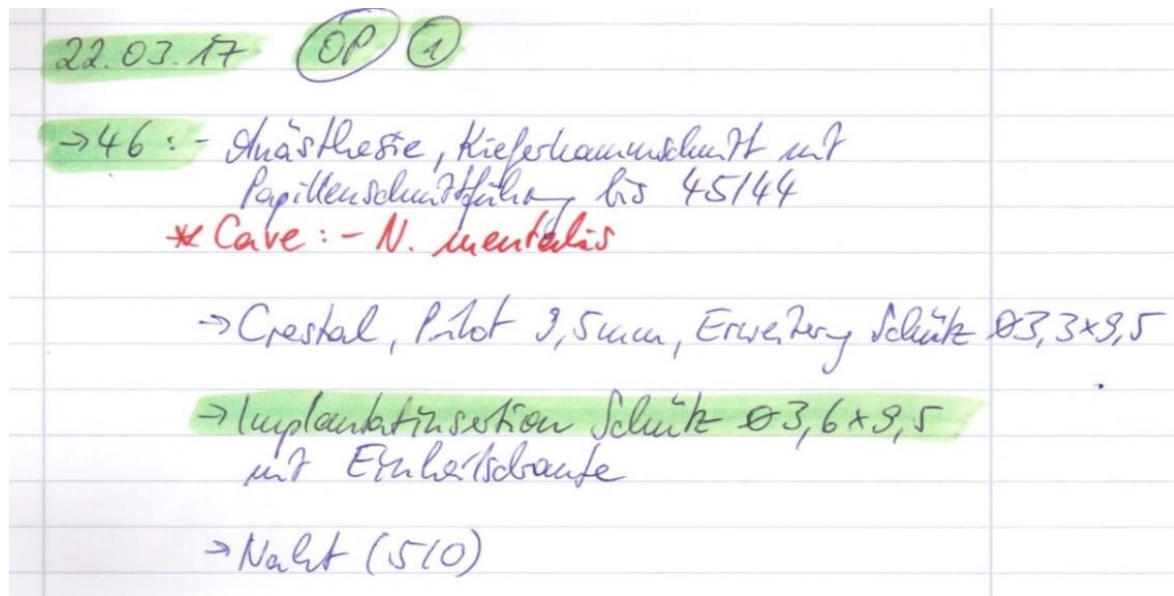 22.03.17 OP 1
→46: - Anästhesie, Kieferkammschnitt mit
Papillenschnittführung bis 45/44
* Cave: - N. mentalis
→ Crestal, Pilot 9,5mm, Erweiterung Schütz ø3,3x9,5
→ Implantatinsertion Schütz ø3,6x9,5
mit Einheilschraube
→ Naht (5/0)